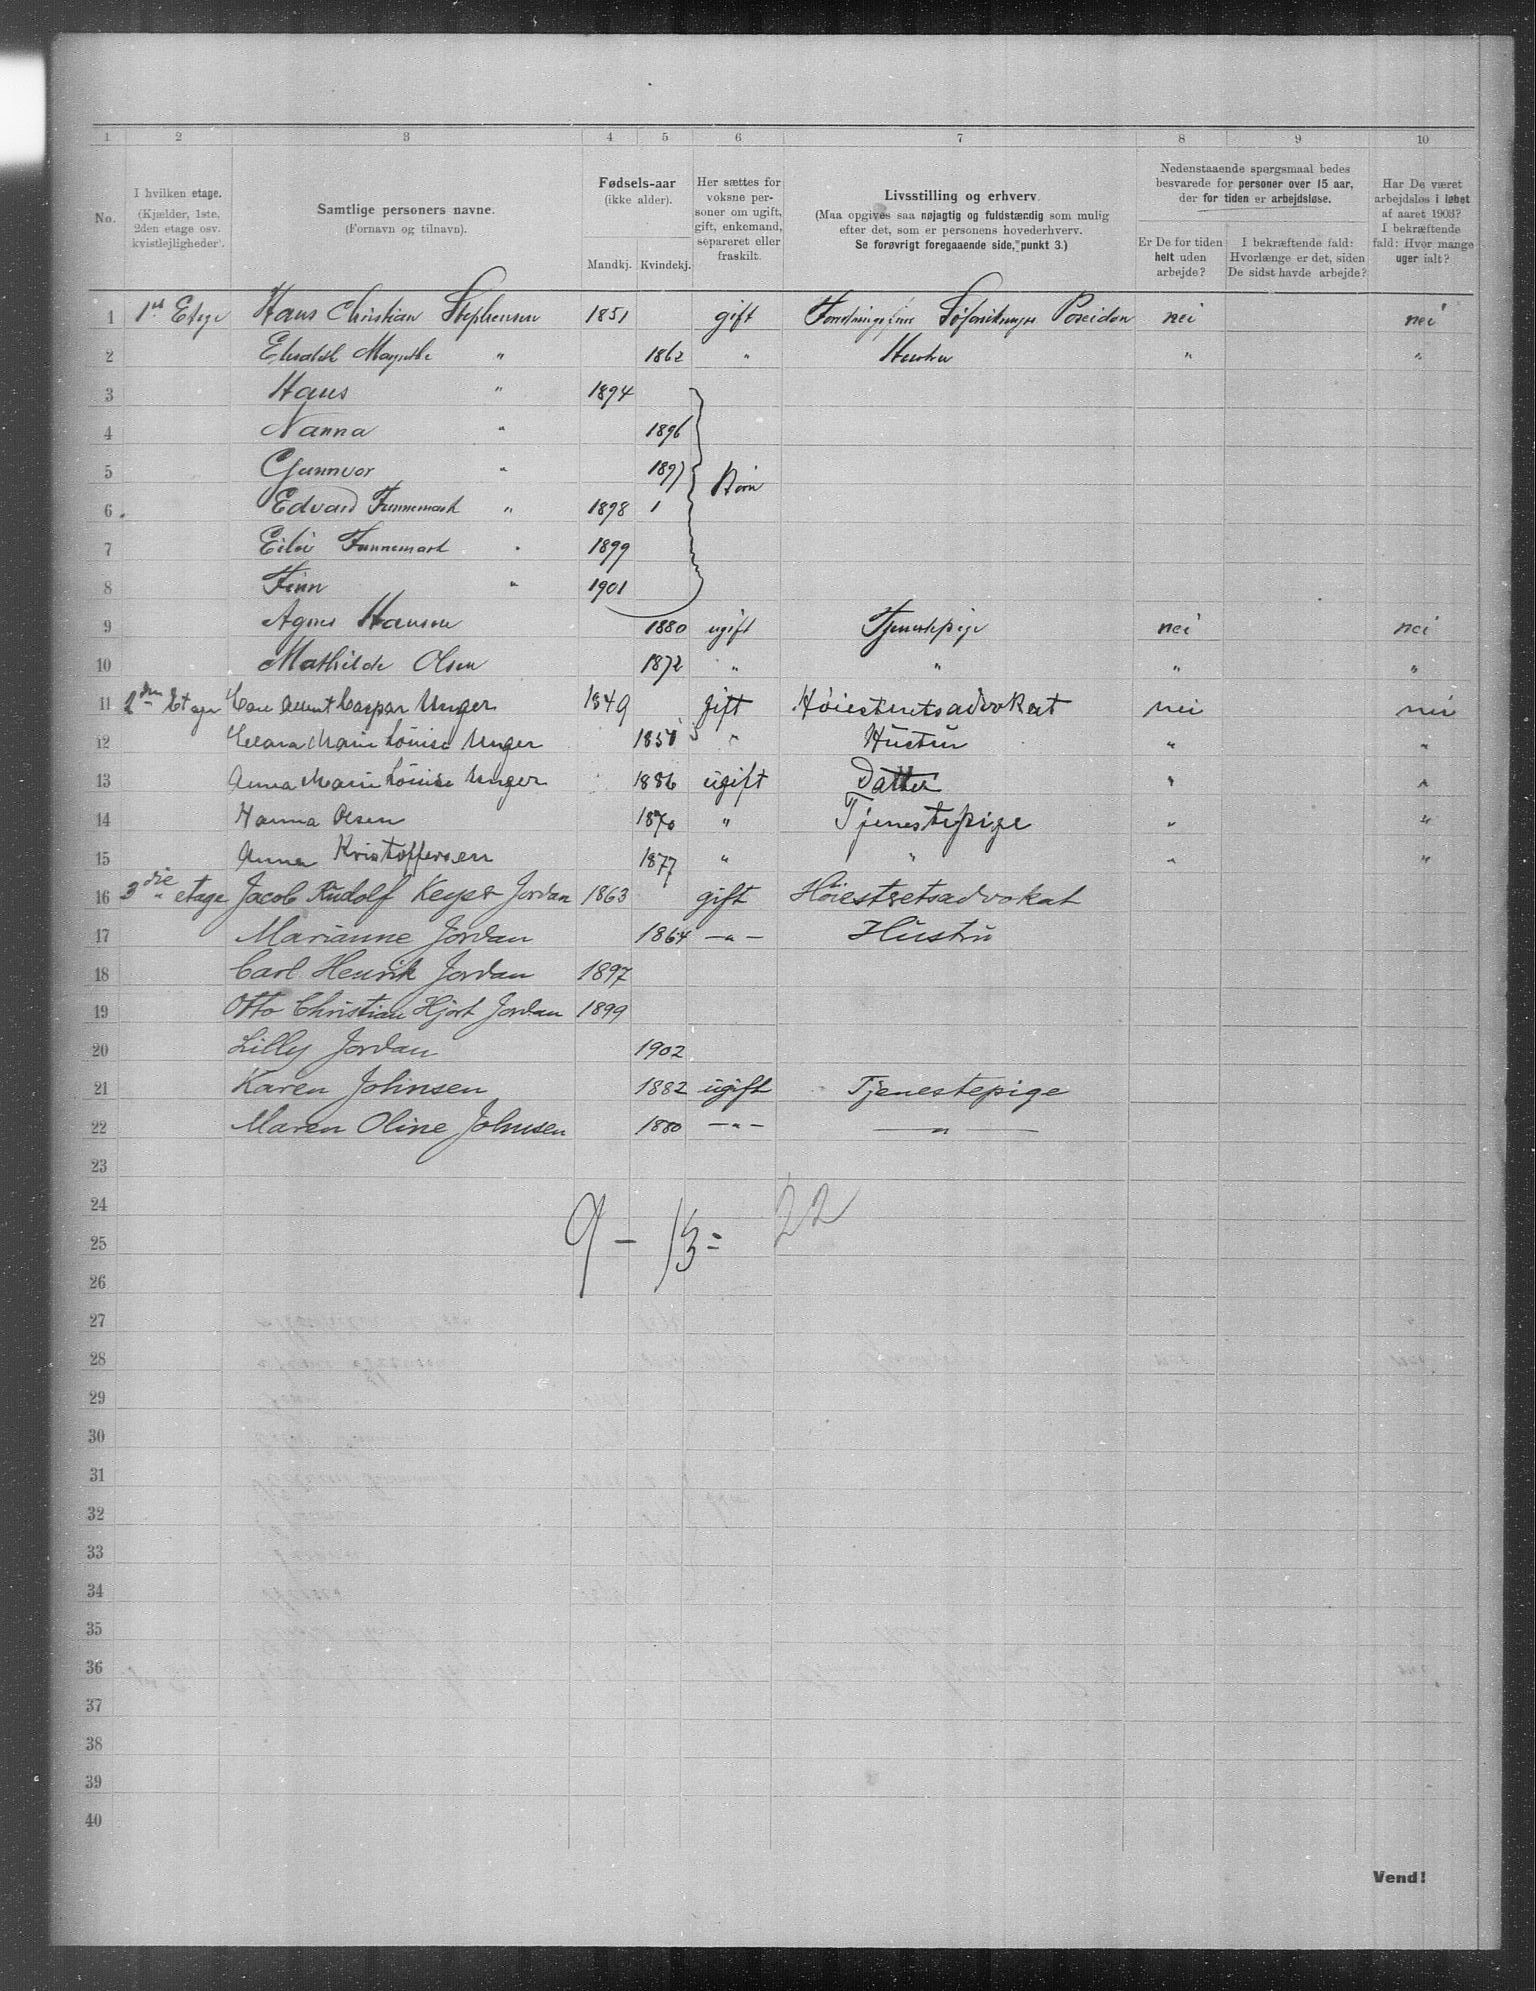 1 2 3 4 5 6 7 8 9 10
No.
I hvilken etage.
(Kjælder, 1ste,
2den etage osv.
kvistlejligheder).
Samtlige personers navne.
(Fornavn og tilnavn).
Fødsels-aar
(ikke alder).
Mandkj. Kvindekj.
Her sættes for
voksne per-
soner om ugift,
gift, enkemand,
separeret eller
fraskilt.
Livsstilling og erhverv.
(Maa opgives saa nøjagtig og fuldstændig som mulig
efter det, som er personens hovederhverv.
Se forøvrigt foregaaende side, punkt 3.)
Nedenstaaende spørgsmaal bedes
besvarede for personer over 15 aar,
der for tiden er arbejdsløse.
Er De for tiden
helt uden
arbejde?
I bekræftende fald:
Hvorlænge er det, siden
De sidst havde arbejde?
Har De været
arbejdsløs i løbet
af aaret 1903?
I bekræftende
fald: Hvor mange
uger ialt?
1 1st Etage Hans Christian Stephensen 1851 gift Poseidon nei nei
2 " 1862 " Hustru " "
3 Hans " 1894
4 Nanna " 1896
5 Gunnvor " 1897 Børn
6 Edvard Funnemark " 1898 1
7 Funnemark " 1899
8 Finn " 1901
9 Agnes Hansen 1880 ugift Tjenestepige nei nei
10 Mathilde Olsen 1872 " " " "
11 2den Etage Caspar Unger 1849 gift Høiesteretsadvokat nei nei
12 Marie Louise Unger " Hustru " "
13 Anna Marie Louise Unger 1886 ugift Datter " "
14 Hanna Olsen 1870 " Tjenestepige " "
15 Anna Kristoffersen 1877 " " " "
16 3die etage Jacob Rudolf Keyser Jordan 1863 gift Høiestretsadvokat
17 Marianne Jordan 1864 —"— Hustru
18 Carl Henrik Jordan 1897
19 Otto Christian Hjort Jordan 1899
20 Lilly Jordan 1902
21 Karen Johnsen 1882 ugift Tjenestepige
22 Maren Oline Johnsen 1880 —"— —"—
23
24
9 – 13 = 22
25
26
27
28
29
30
31
32
33
34
35
36
37
38
39
40
Vend!